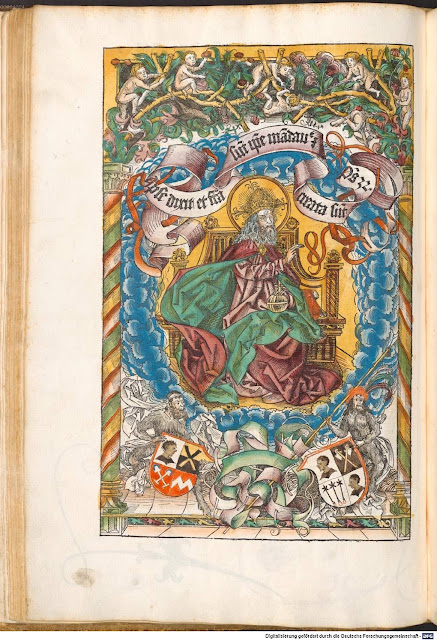 Ipse dixit et fcā
sūt ip̄e mādau⁊
creata sūt
Digitalisierung gefördert durch die Deutsche Forschungsgemeinschaft - DFG